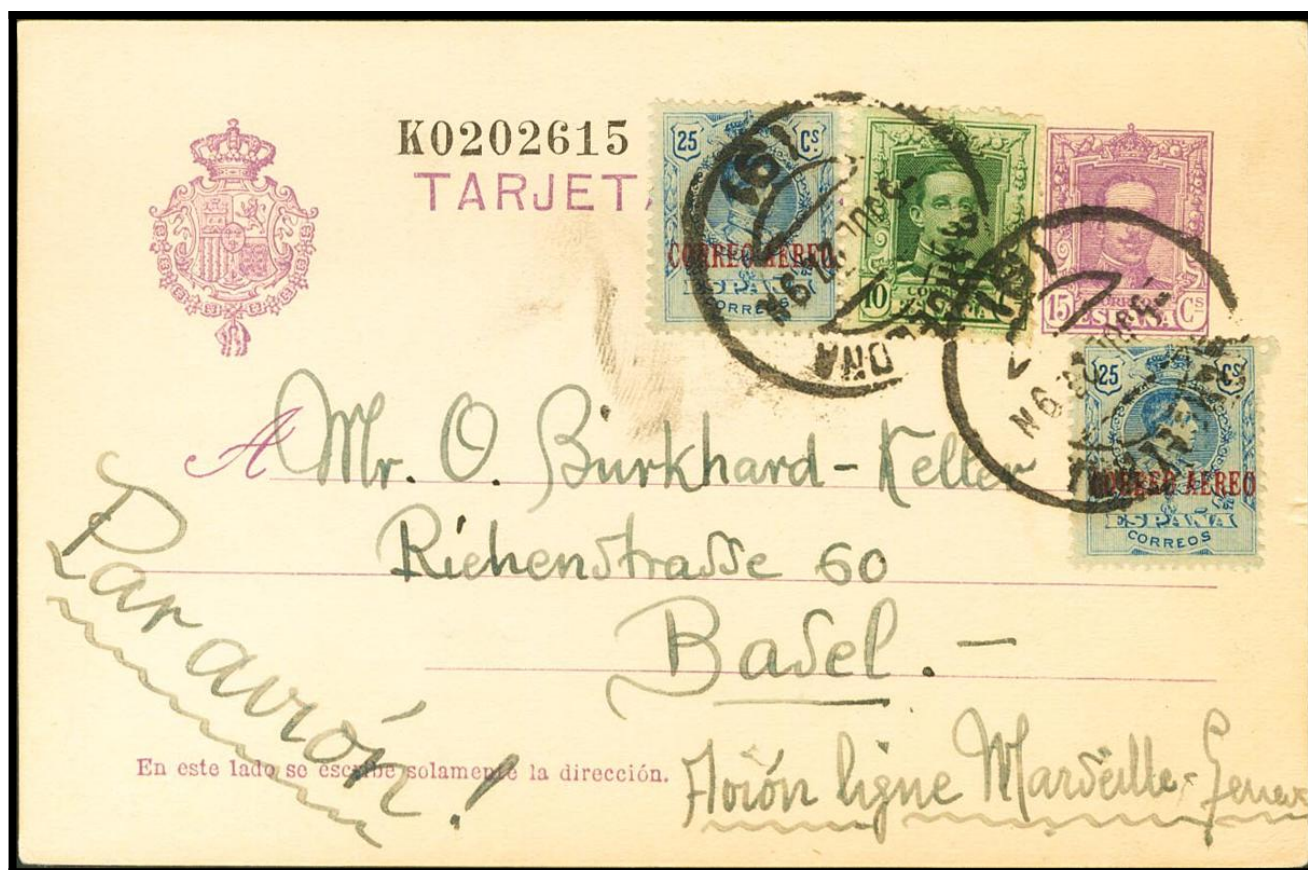 K0202615
TARJET
25 Cs
CORREO AEREO
ESPAÑA
CORREOS
10
15 ESPAÑA Cs
25 Cs
CORREO AEREO
ESPAÑA
CORREOS
A Mr. O. Burkhard-Keller
Riehenstrasse 60
Basel.-
Par avión!
En este lado se escribe solamente la dirección.
Avión ligne Marseille-